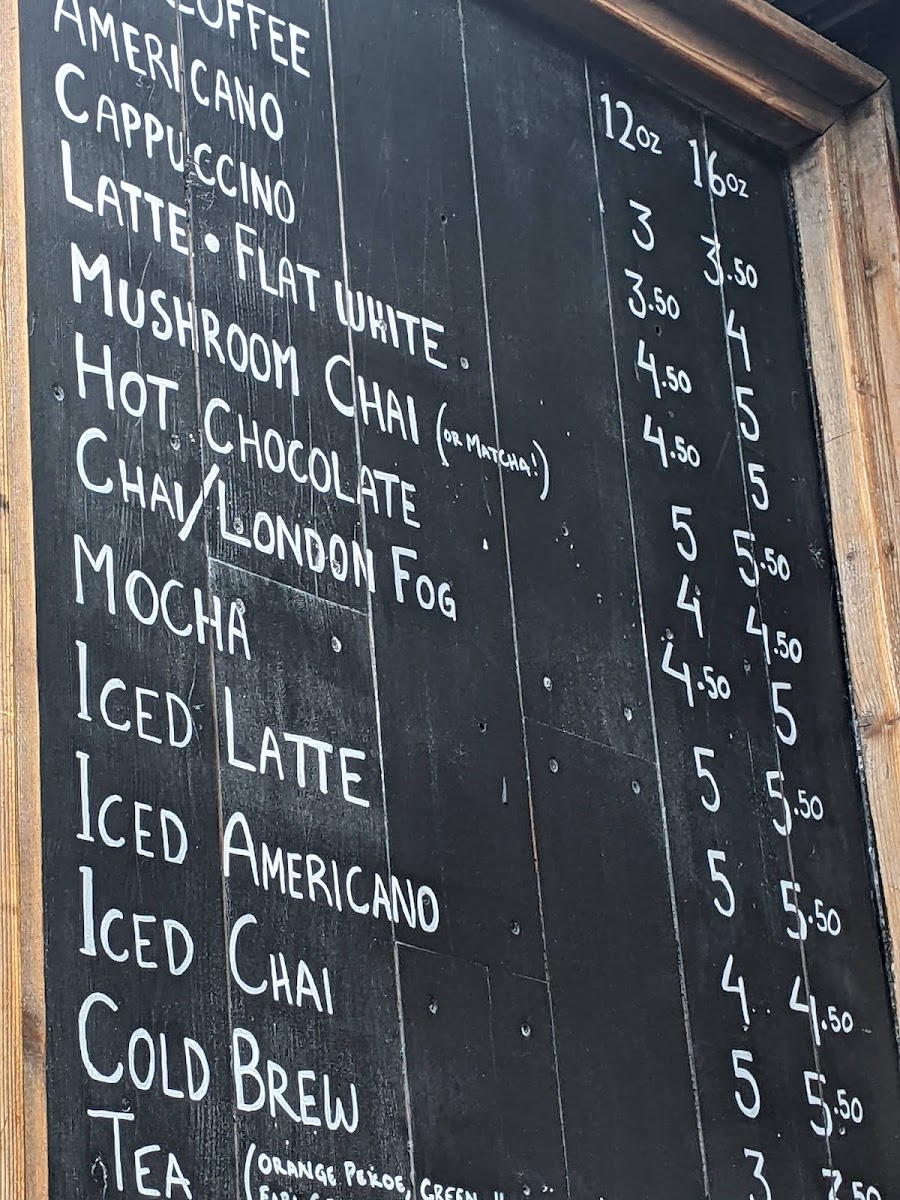 12oz 16oz
COFFEE 3 3.50
AMERICANO 3.50 4
CAPPUCCINO 4.50 5
LATTE • FLAT WHITE 4.50 5
MUSHROOM CHAI (OR MATCHA!) 5 5.50
HOT CHOCOLATE 4 4.50
CHAI/LONDON FOG 4.50 5
MOCHA 5 5.50
ICED LATTE 5 5.50
ICED AMERICANO 4 4.50
ICED CHAI 5 5.50
COLD BREW 3
TEA (ORANGE PEKOE, GREEN